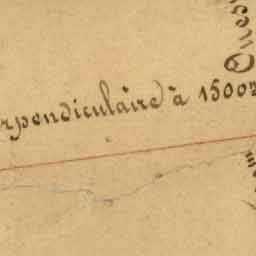 rpendiculaire à 1500
Oues